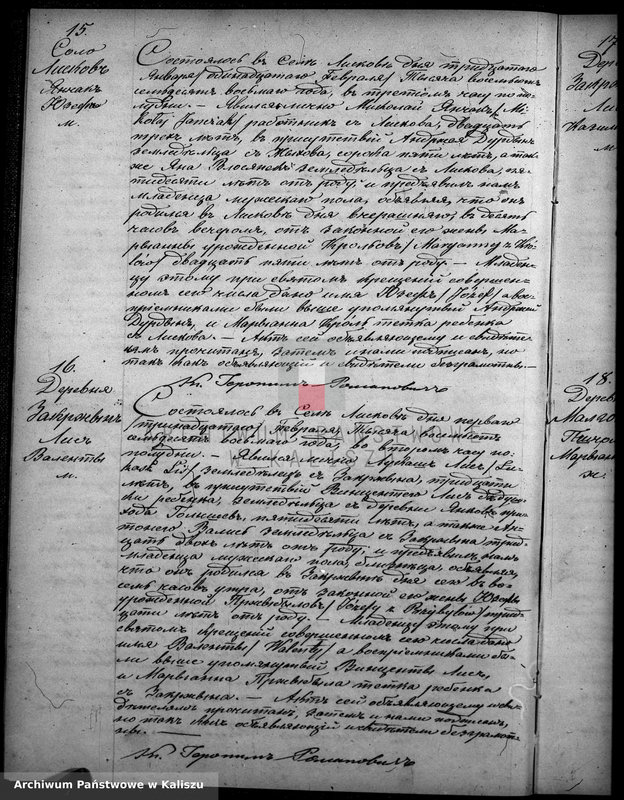 15.
Село
Лисковъ
Янчакъ
Юзефъ
м.
Состоялось въ Селѣ Лисковѣ дня тридцатаго
Января /одинадцатаго Февраля/ Тысяча восемьсотъ
семьдесятъ восьмаго года, въ третьемъ часу по по-
лудни. — Явился лично Миколай Янчакъ /Mi-
kołaj Janczak/ работникъ съ Лискова, двадцать
трехъ лѣтъ, въ присутствіи Андржея
земледѣльца съ сорока пяти лѣтъ, а так-
же Яна земледѣльца съ Лискова, пя-
тидесяти лѣтъ отъ роду; и предъявилъ намъ
младенца мужескаго пола, объявляя, что онъ
родился въ Лисковѣ дня вчерашняго, въ десять
часовъ вечеромъ, отъ законной его жены Ма-
ріанны урожденной Крольовъ /Maryanny z Kró-
lów/ двадцать пяти лѣтъ отъ роду. — Младен-
цу этому при святомъ крещеніи совершен-
номъ сего числа дано имя Юзефъ /Józef/ а вос-
пріемниками были выше упомянутый Андржей
и Марьянна Кроль тетка ребенка
съ Лискова. — Актъ сей объявляющему и свидѣте-
лямъ прочитанъ, затѣмъ нами подписанъ, но
такъ какъ объявляющій и свидѣтели безграмотны. —
Кс. Геронимъ Романовичъ
16.
Деревня
Закржинъ
Лисъ
Валенты
м.
Состоялось въ Селѣ Лисковѣ дня перваго
/тринадцатаго/ Февраля Тысяча восемьсотъ
семьдесятъ восьмаго года, въ второмъ часу по
полудни. — Явился лично Лукашъ Лисъ /Łu-
kasz Lis/ земледѣлецъ съ Закржина, тридцать
лѣтъ, въ присутствіи Винцентего Лисъ дѣдуш-
ки ребенка, земледѣльца съ деревни Янковъ при-
хода пятидесяти лѣтъ, а также Ан-
тонего Валисъ земледѣльца съ Закржина трид-
цать двохъ лѣтъ отъ роду; и предъявилъ намъ
младенца мужескаго пола, объявляя,
что онъ родился въ Закржинѣ дня сего въ во-
семь часовъ утра, отъ законной его жены Юзефы
урожденной Пржибыловъ /Józefy z Przybyłów/ трид-
цати лѣтъ отъ роду. — Младенцу этому при
святомъ крещеніи совершенномъ сего числа дано
имя Валенты /Walenty/ а воспріемниками бы-
ли выше упомянутый Винценты Лисъ,
и Марьянна Пржибыла тетка ребенка
съ Закржина. — Актъ сей объявляющему и сви-
дѣтелямъ прочитанъ, затѣмъ нами подписанъ,
но такъ какъ объявляющій и свидѣтели безграмот-
ны. —
Кс. Геронимъ Романовичъ
17.
18.
Archiwum Państwowe w Kaliszu